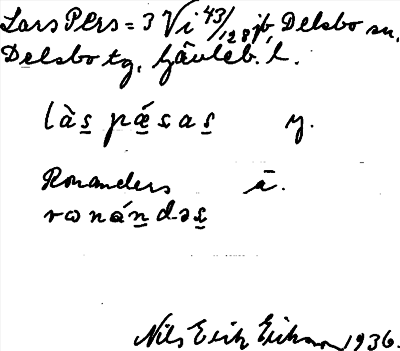 Lars Pers = 3 Vi 43/128 jb, Delsbo sn,
Delsbo tg, Gävleb. l.
làs̲ pǽsas̲ y.
Ronanders ä.
ronán̲dəs̲
Nils Erik Erikson 1936.